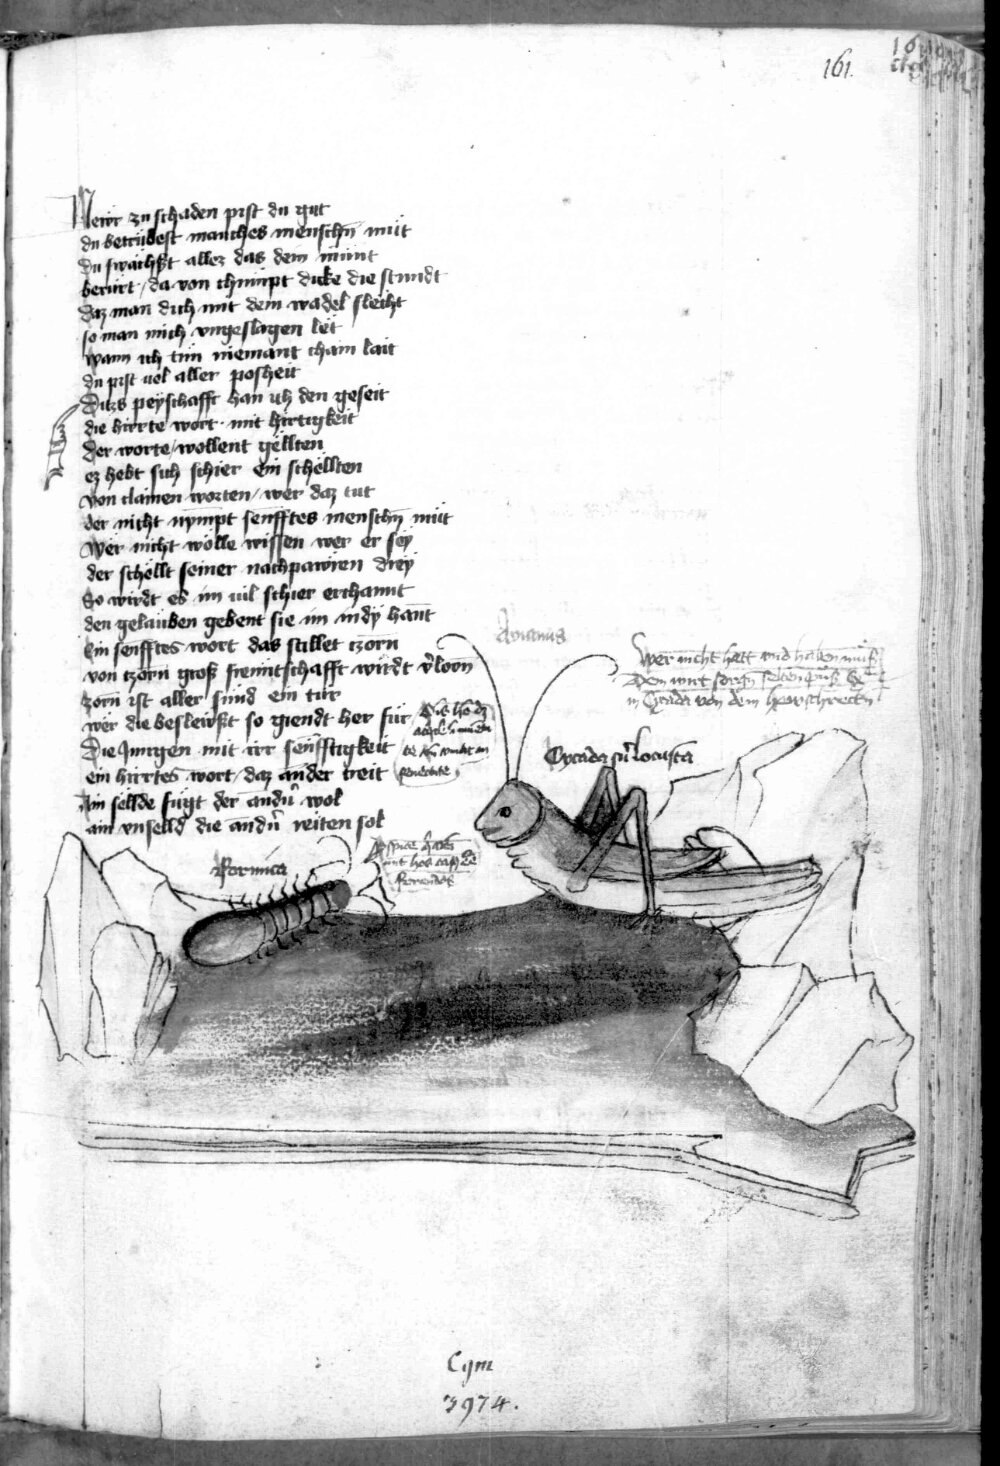 161.
Newr zu schaden pist du gut
du betrübest manches menschn̄ müt
du swachst allez das dein münt
berürt / da von chümpt dicke die stundt
daz man dich mit dem wadel slecht
so man mich vngeslagen let
wann ich tün niemant chain lait
du pist uol aller posheit
Ditzs peyschafft han ich den geseit
die hirrte wort mit hirtigkeit
der worte / wollent gellten
ez hebt sich schier ein schellten
von clainen worten / wer daz tut
der nicht nympt senfftes menschn̄ müt
Wer nicht wölle wissen wer er sey
der schellt seiner nachpawren drey
So wirdt es im uil schier erchannt
den gelauben gebent sie im indy hant
Ein senfftes wort das stillet tzorn
von tzorn groß freuntschafft wirdt v̓lorn̄
zorn ist aller sünd ein tür
wer die besleusst so giendt her für
Die Jungen mit irr senfftigkeit
ein hirrtes wort / daz ander treit
Ain sellde fügt der andn̓ wol
ain vnselld die andn̓ reiten sol
Auianus
Wer nicht hett vnd haben muß
Dem wirt sorgn̄ selten puß &c
von dem hewschrecken
Cycada siu̓ locusta
Formica
senectute
Cgm
3974.